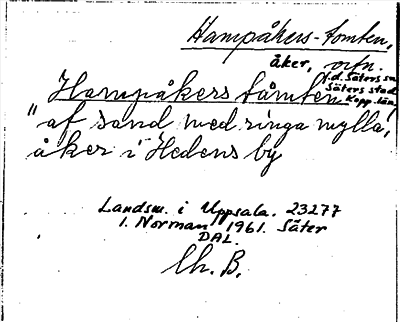 Hampåkers-tomten,
åker, ortn.
f.d. Säters sn
Säters stad
Kopp. län,
Hampåkers tåmten
"af sand med ringa mylla,
åker i Hedens by
Landsm. i Uppsala. 23277
I. Norman 1961. Säter
DAL.
Ch. B.